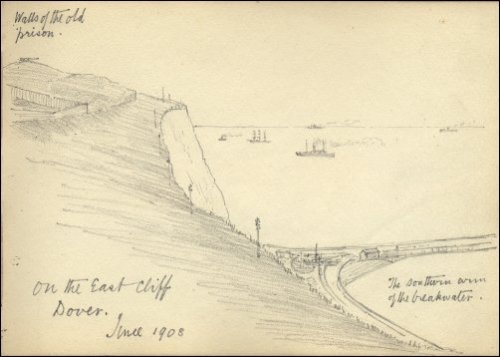 Walls of the old
prison.
On the East Cliff
Dover.
June 1908
The southern arm
of the breakwater.